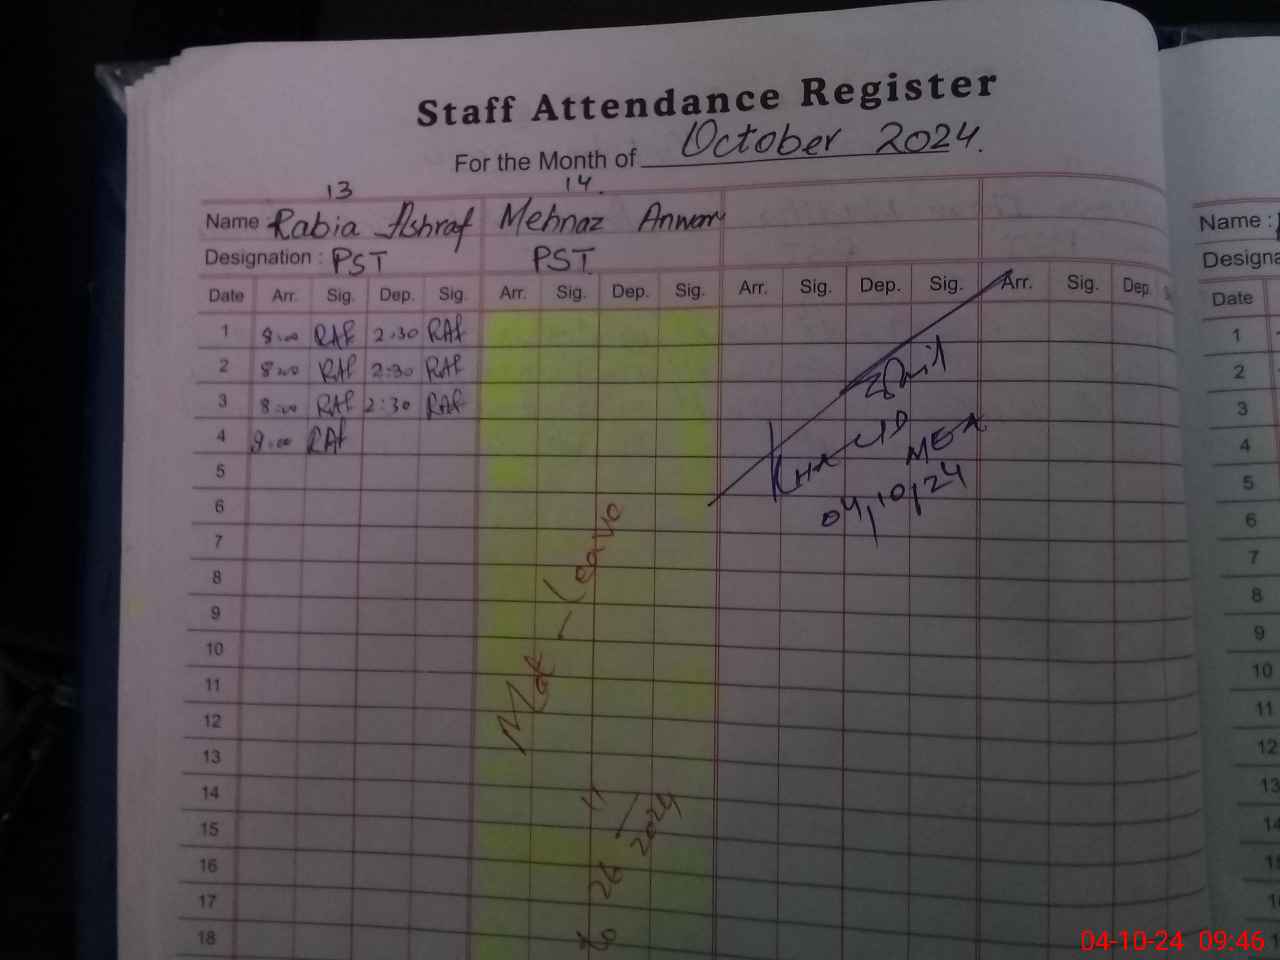 Staff Attendance Register
For the Month of October 2024.
13 14.
Name Rabia Ashraf Mehnaz Anwar
Designation : PST PST
Date Arr. Sig. Dep. Sig. Arr. Sig. Dep. Sig. Arr. Sig. Dep. Sig. Arr. Sig. Dep.
1 8:00 RAf 2:30 RAf
2 8:00 RAf 2:30 RAf
3 8:00 RAf 2:30 RAf
4 8:00 RAf
5
6
7
8
9
10
11
12
13
14
15
16
17
18
KHALID
MEA
04/10/24
Mat - Leave
to 26 11 2024
Name :
Designa
Date
1
2
3
4
5
6
7
8
9
10
11
12
13
14
04-10-24 09:46